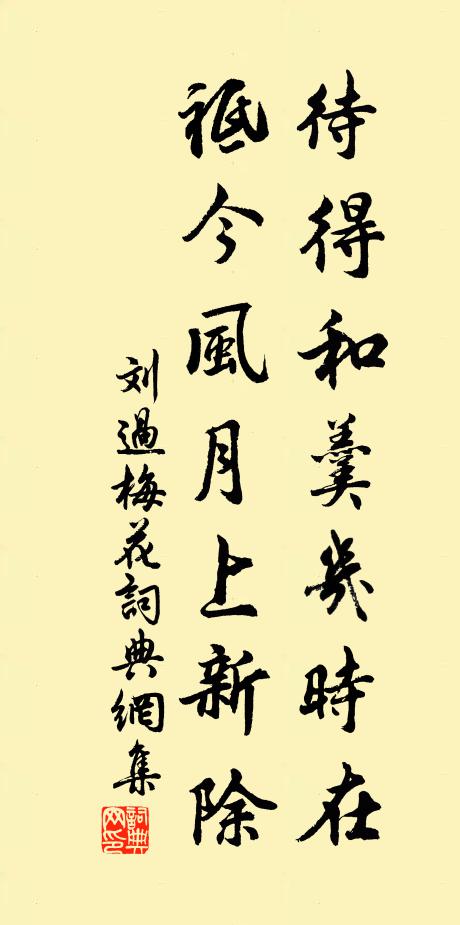 待得和羹幾時在
祗今風月上新除
刘過梅花詞典網集
詞典网印